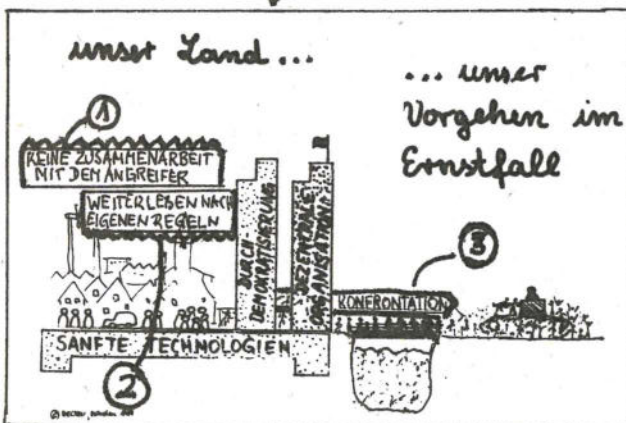 unser Land...
... unser
Vorgehen im
Ernstfall
1
KEINE ZUSAMMENARBEIT
MIT DEM ANGREIFER
WEITERLEBEN NACH
EIGENEN REGELN
DURCH-
DEMOKRATISIERUNG
DEZENTRALE
ORGANISATION
3
KONFRONTATION
SANFTE TECHNOLOGIEN
2
©